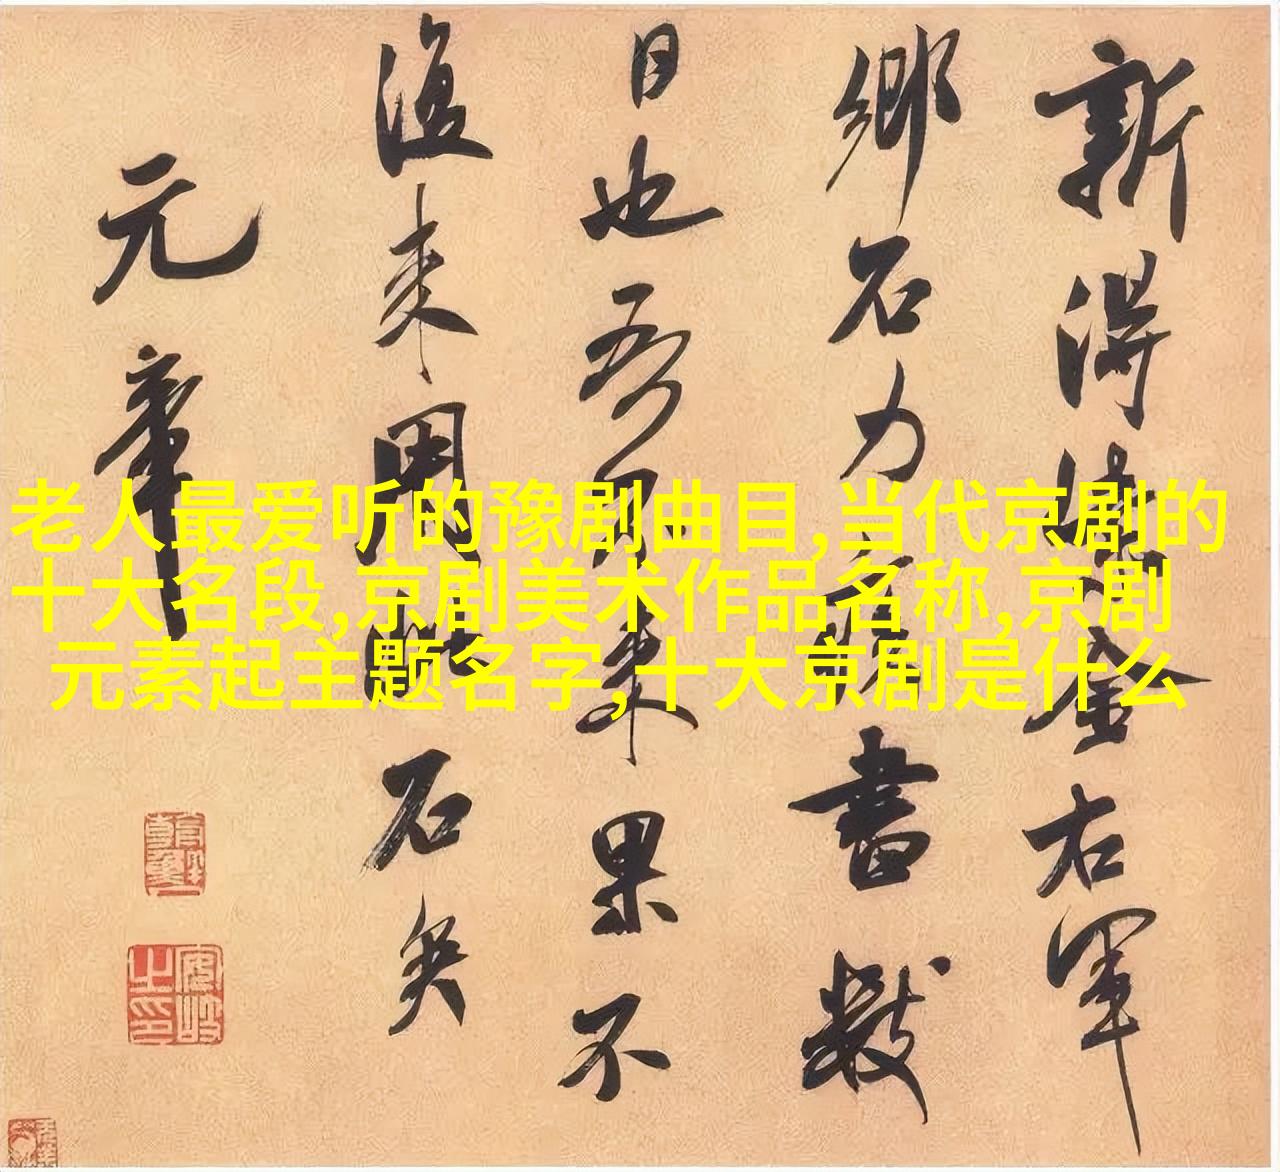 老人最爱听的豫剧曲目,当代京剧的
十大名段,京剧美术作品名称,京剧
元素起主题名字,十大京剧是什么
新得金右軍
鄉石力書數
日也吾來果不
復来用石矣
元章